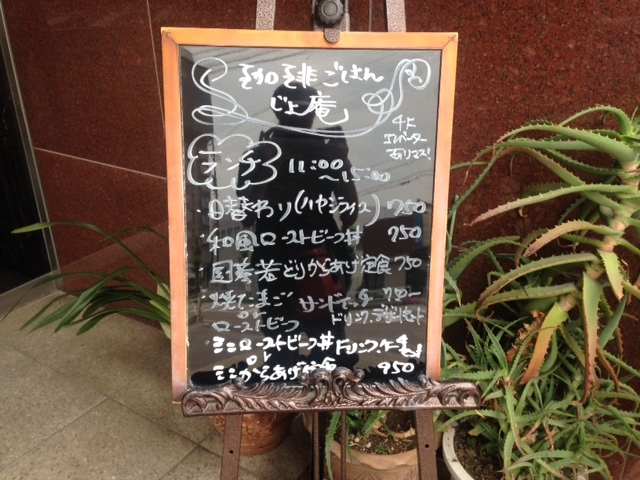 珈琲ごはん
じょ庵
4F
エレベーター
あります!
ランチ 11:00
～15:00
・日替わり(ハヤシライス) 750
・和風ローストビーフ丼 950
・国産若どりからあげ定食 750
・焼たまご サンドセット 750ー
or ドリンク、デザートセット
ローストビーフ
ミニローストビーフ丼 ドリンク、ケーキ
or
ミニからあげ定食 950